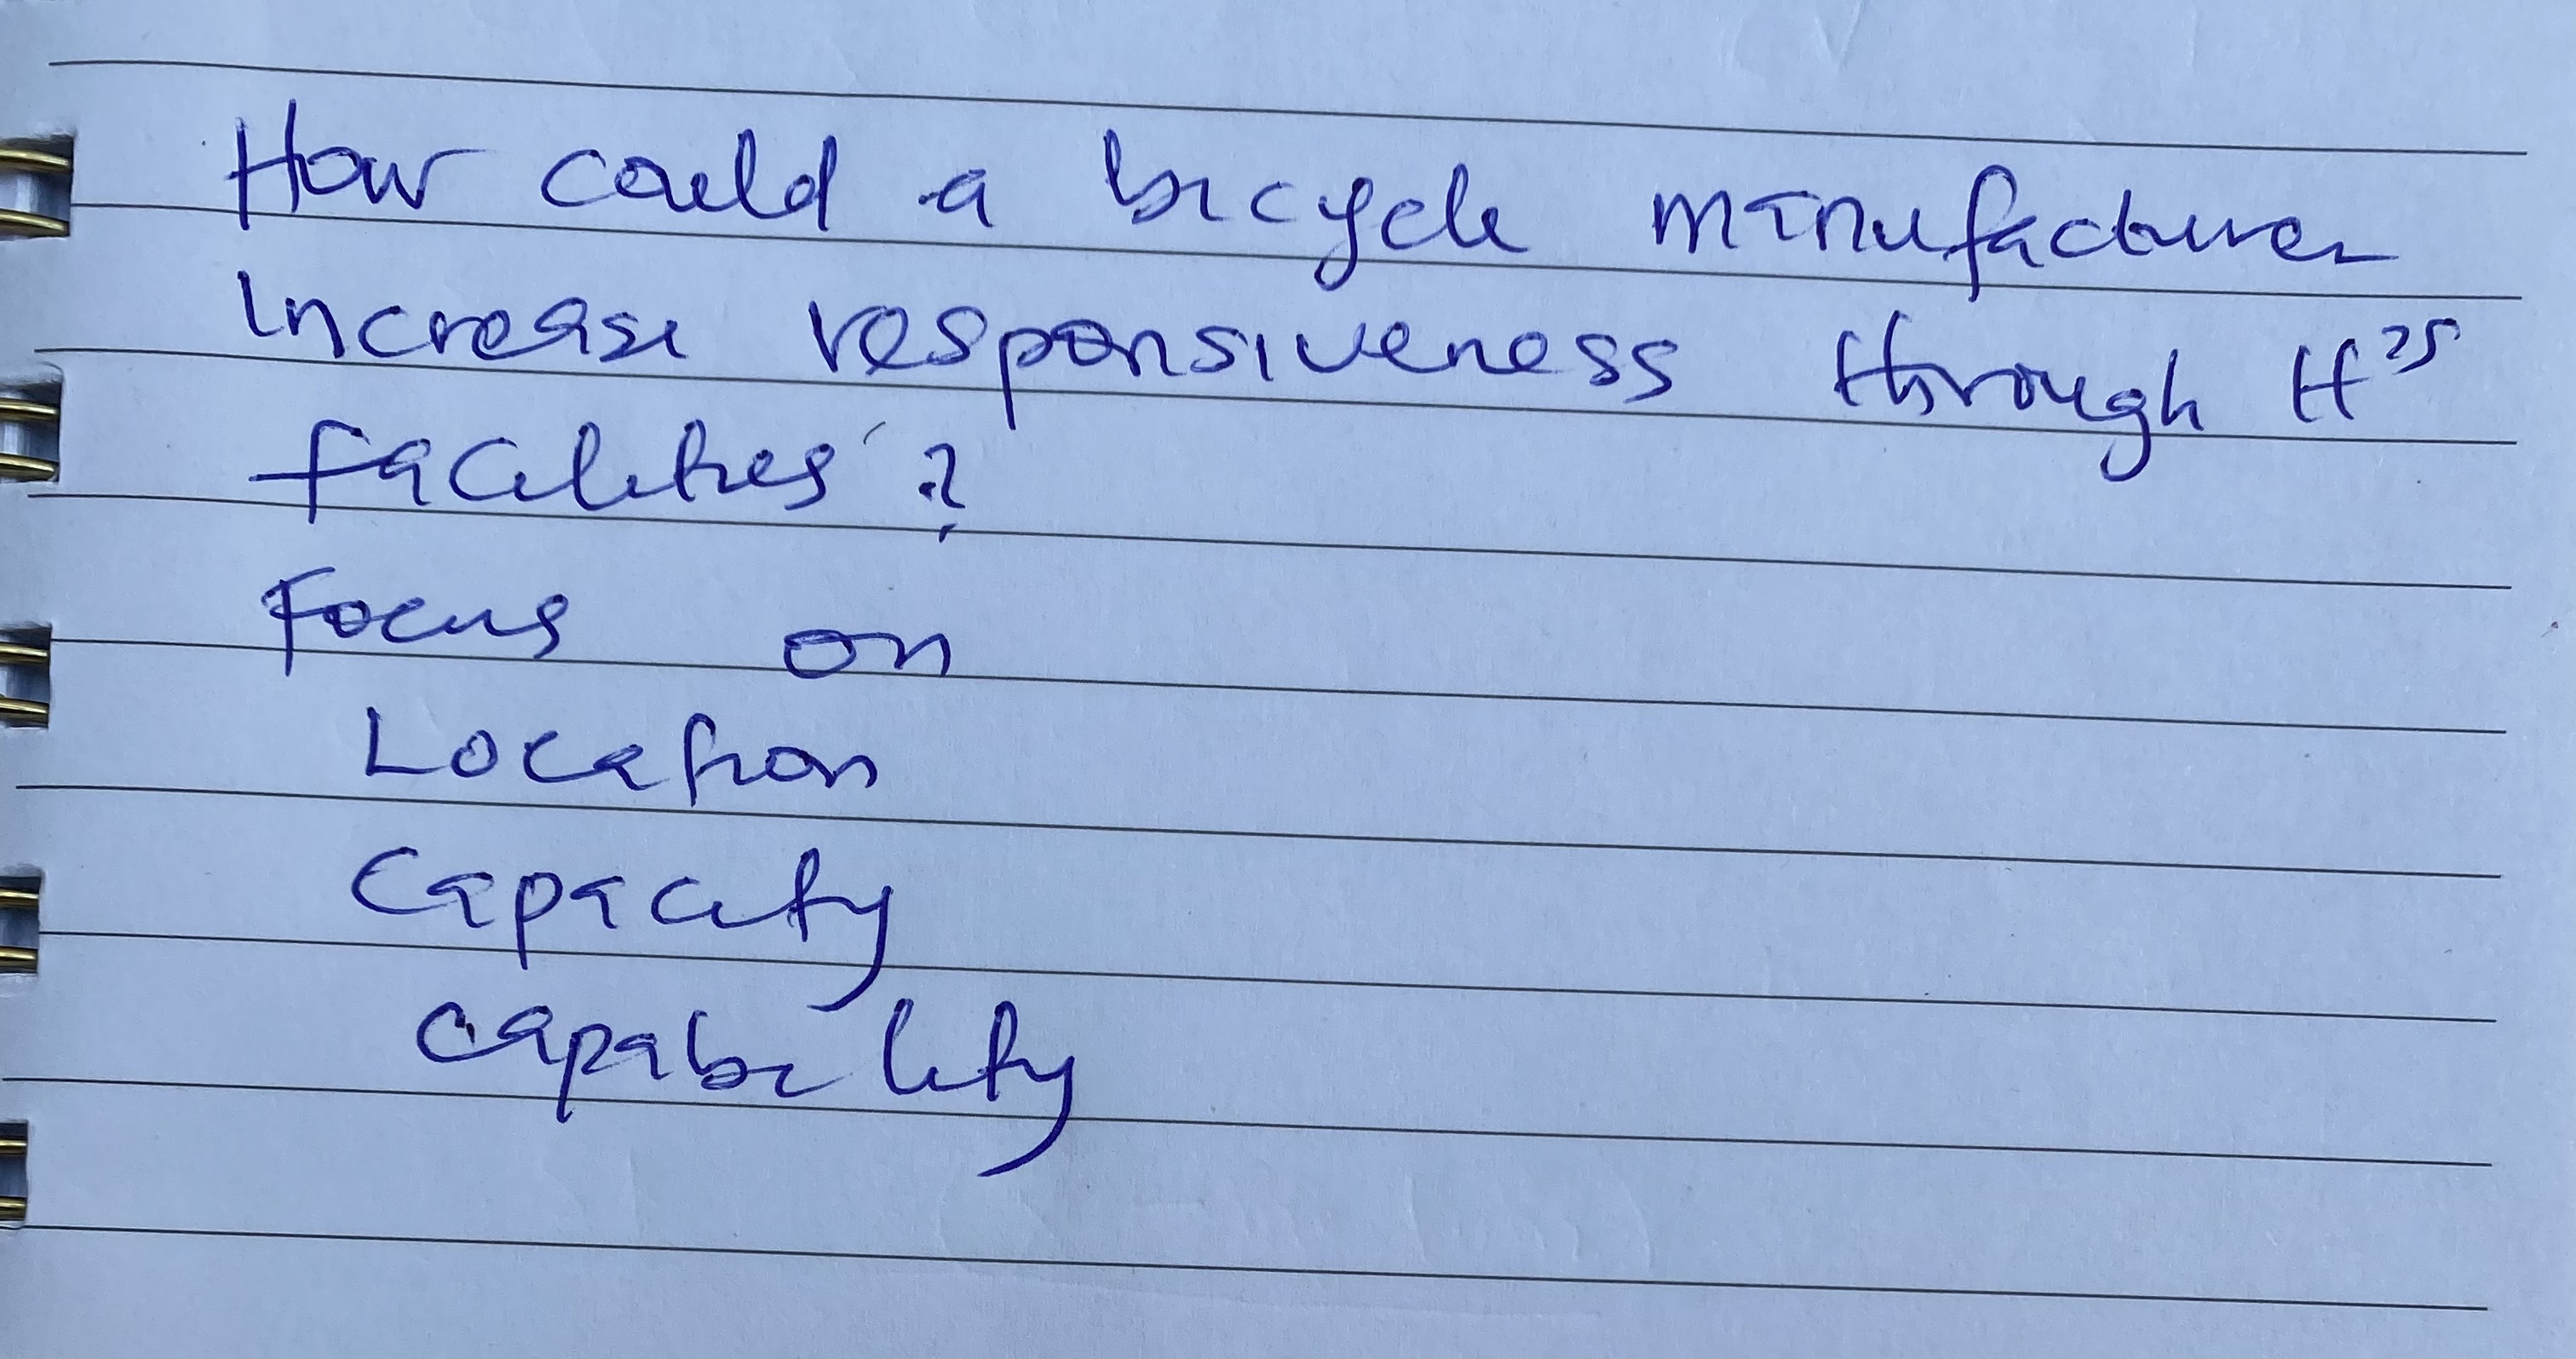 How could a bicycle manufacturer
increase responsiveness through its
facilities?
Focus on
Location
Capacity
Capability